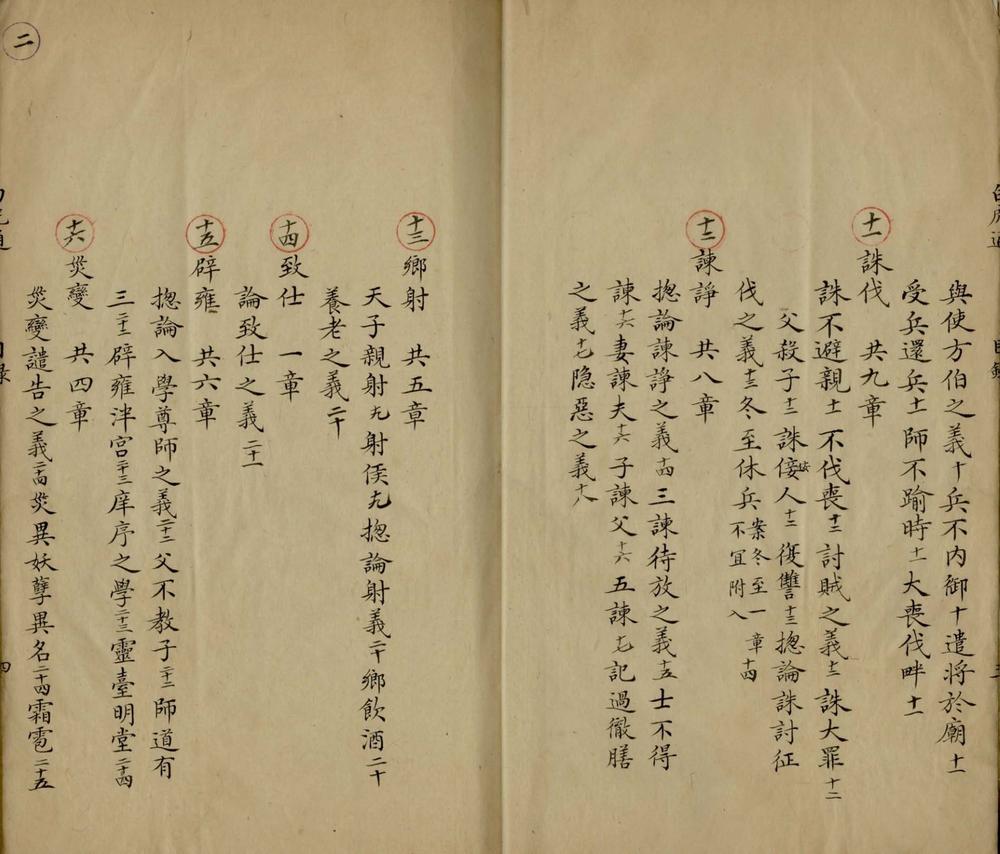 與使方伯之義十兵不内御十遣將於廟十一
受兵還兵十一師不踰時十一大喪伐畔十一
十一誅伐　共九章
誅不避親十一不伐喪十二討賊之義十二誅大罪十二
父殺子十二誅佞人十二復讐十三揔論誅討征
伐之義十三冬至休兵案冬至一章不宜附入十四
十二諫諍　共八章
揔論諫諍之義十四三諫待放之義十五士不得
諫十六妻諫夫十六子諫父十六五諫十七記過徹膳
之義十七隐惡之義十八
十三鄉射　共五章
天子親射十九射侯十九揔論射義二十鄉飲酒二十
養老之義二十
十四致仕　一章
論致仕之義二十一
十五辟雍　共六章
揔論入學尊師之義二十二父不教子二十二師道有
三二十二辟雍泮宮二十三庠序之學二十三靈臺明堂二十四
十六災變　共四章
災變譴告之義二十四災異妖孽異名二十四霜雹二十五
二
目錄
四